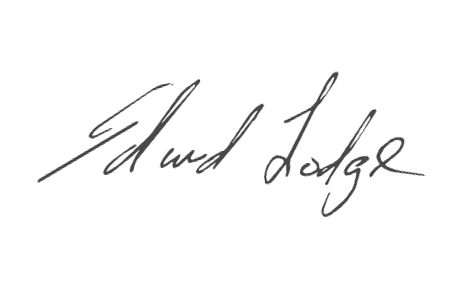 Edward Lodge